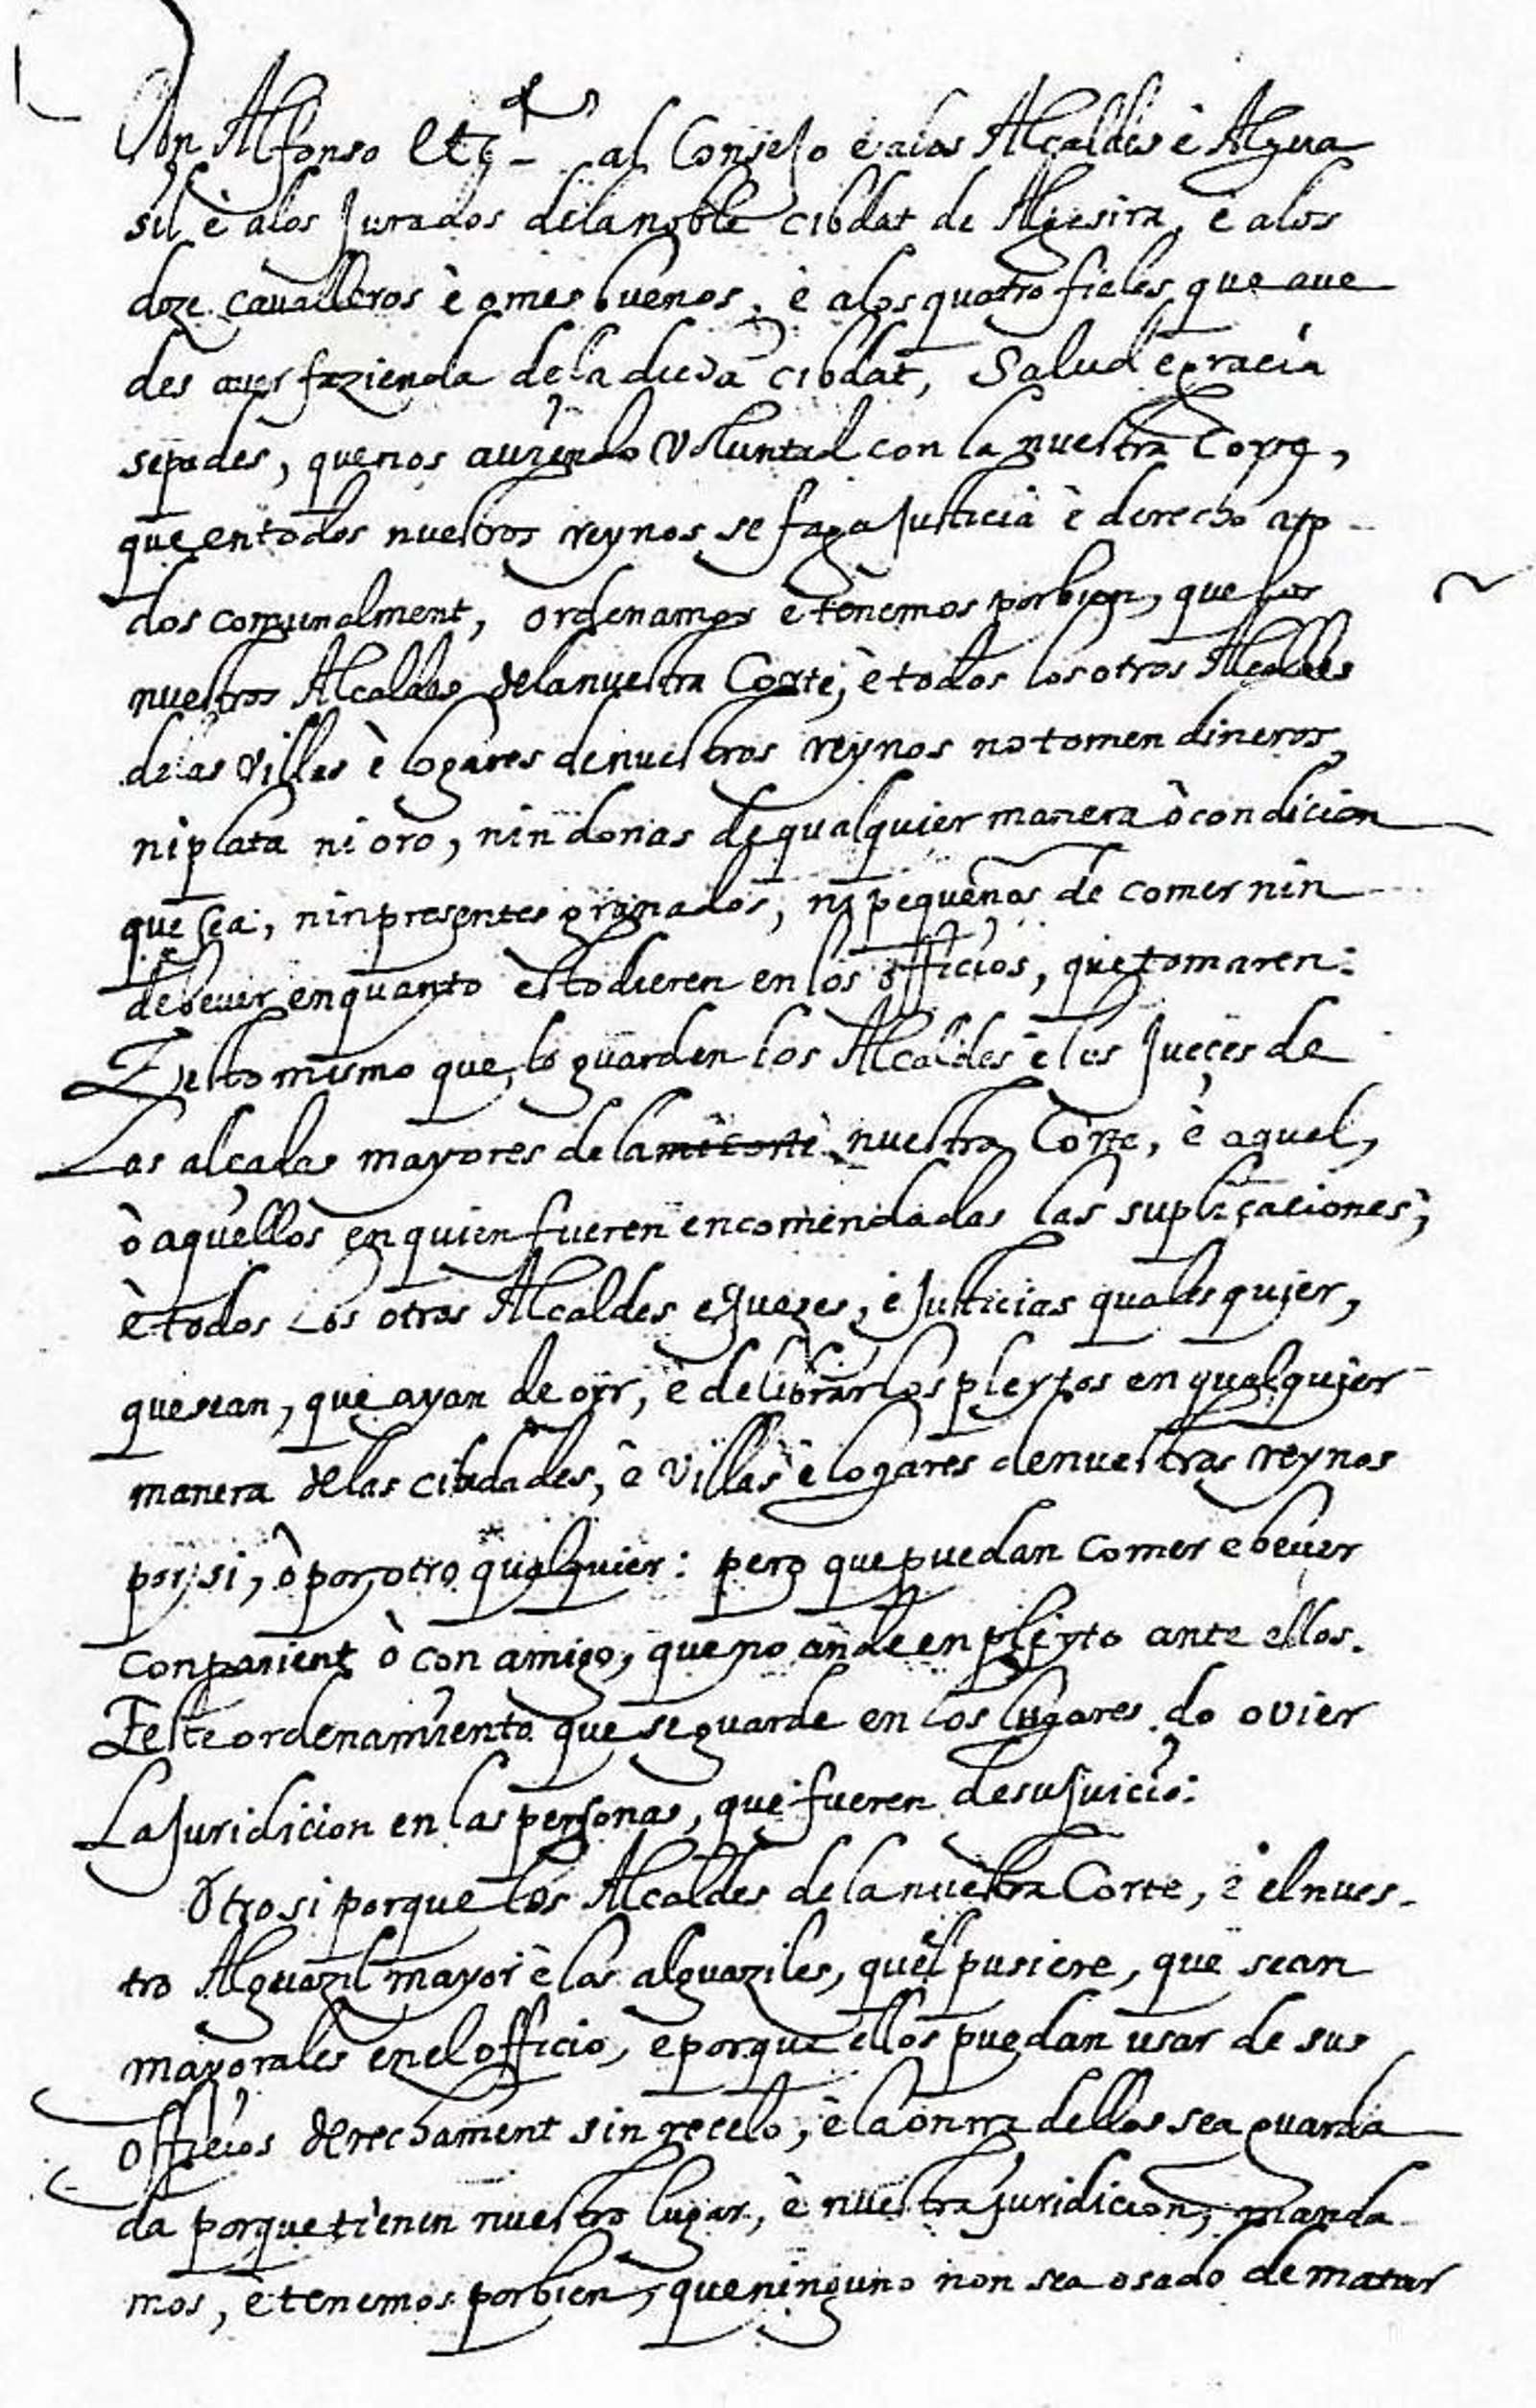 Don Alfonso etc al Consejo è a los Alcaldes è Algua
sil è alos Jurados dela noble cibdat de Algesira, e alos
doze cavalleros è omes buenos, è alos quatro fieles que ave
des aver fazienda de la dicha cibdat, Salud e gracia
sepades, que nos aviendo voluntad con la nuestra Corte,
que en todos nuestros reynos se faga Justicia è derecho a to-
dos comunalment, ordenamos e tenemos por bien, que los
nuestros Alcaldes dela nuestra Corte, è todos los otros Alcaldes
de las Villas è logares de nuestros reynos no tomen dineros,
ni plata ni oro, nin donas de qualquier manera ò condicion
que sea, nin presentes granados, ni pequeños de comer nin
de bever en quanto estodieren en los officios, que tomaren:
E esto mismo que lo guarden los Alcaldes e los Jueces de
Las alçadas mayores de la mi corte nuestra Corte, è aquel,
ò aquellos en quien fueren encomendadas las suplicaciones,
è todos Los otros Alcaldes e Juezes, e Justicias quales quier,
que sean, que ayan de oir, e de librar los pleytos en qualquier
manera delas cibdades, è Villas è logares de nuestros reynos
por si, ò por otro qualquier: pero que puedan comer e bever
con parient ò con amigo, que no ande en pleyto ante ellos.
E este ordenamiento que se guarde en los lugares do ovier
La Juridicion en las personas, que fueren de su Juicio:
Otrosi porque los Alcaldes de la nuestra Corte, è el nues-
tro Alguazil mayor è los alguaziles, quel pusiere, que sean
mayorales en el officio, e porque ellos puedan usar de sus
officios derechament sin recelo, è la onrra dellos sea guarda
da porque tienen nuestro lugar, è nuestra juridicion, manda
mos, è tenemos por bien, que ninguno non sea osado de matar